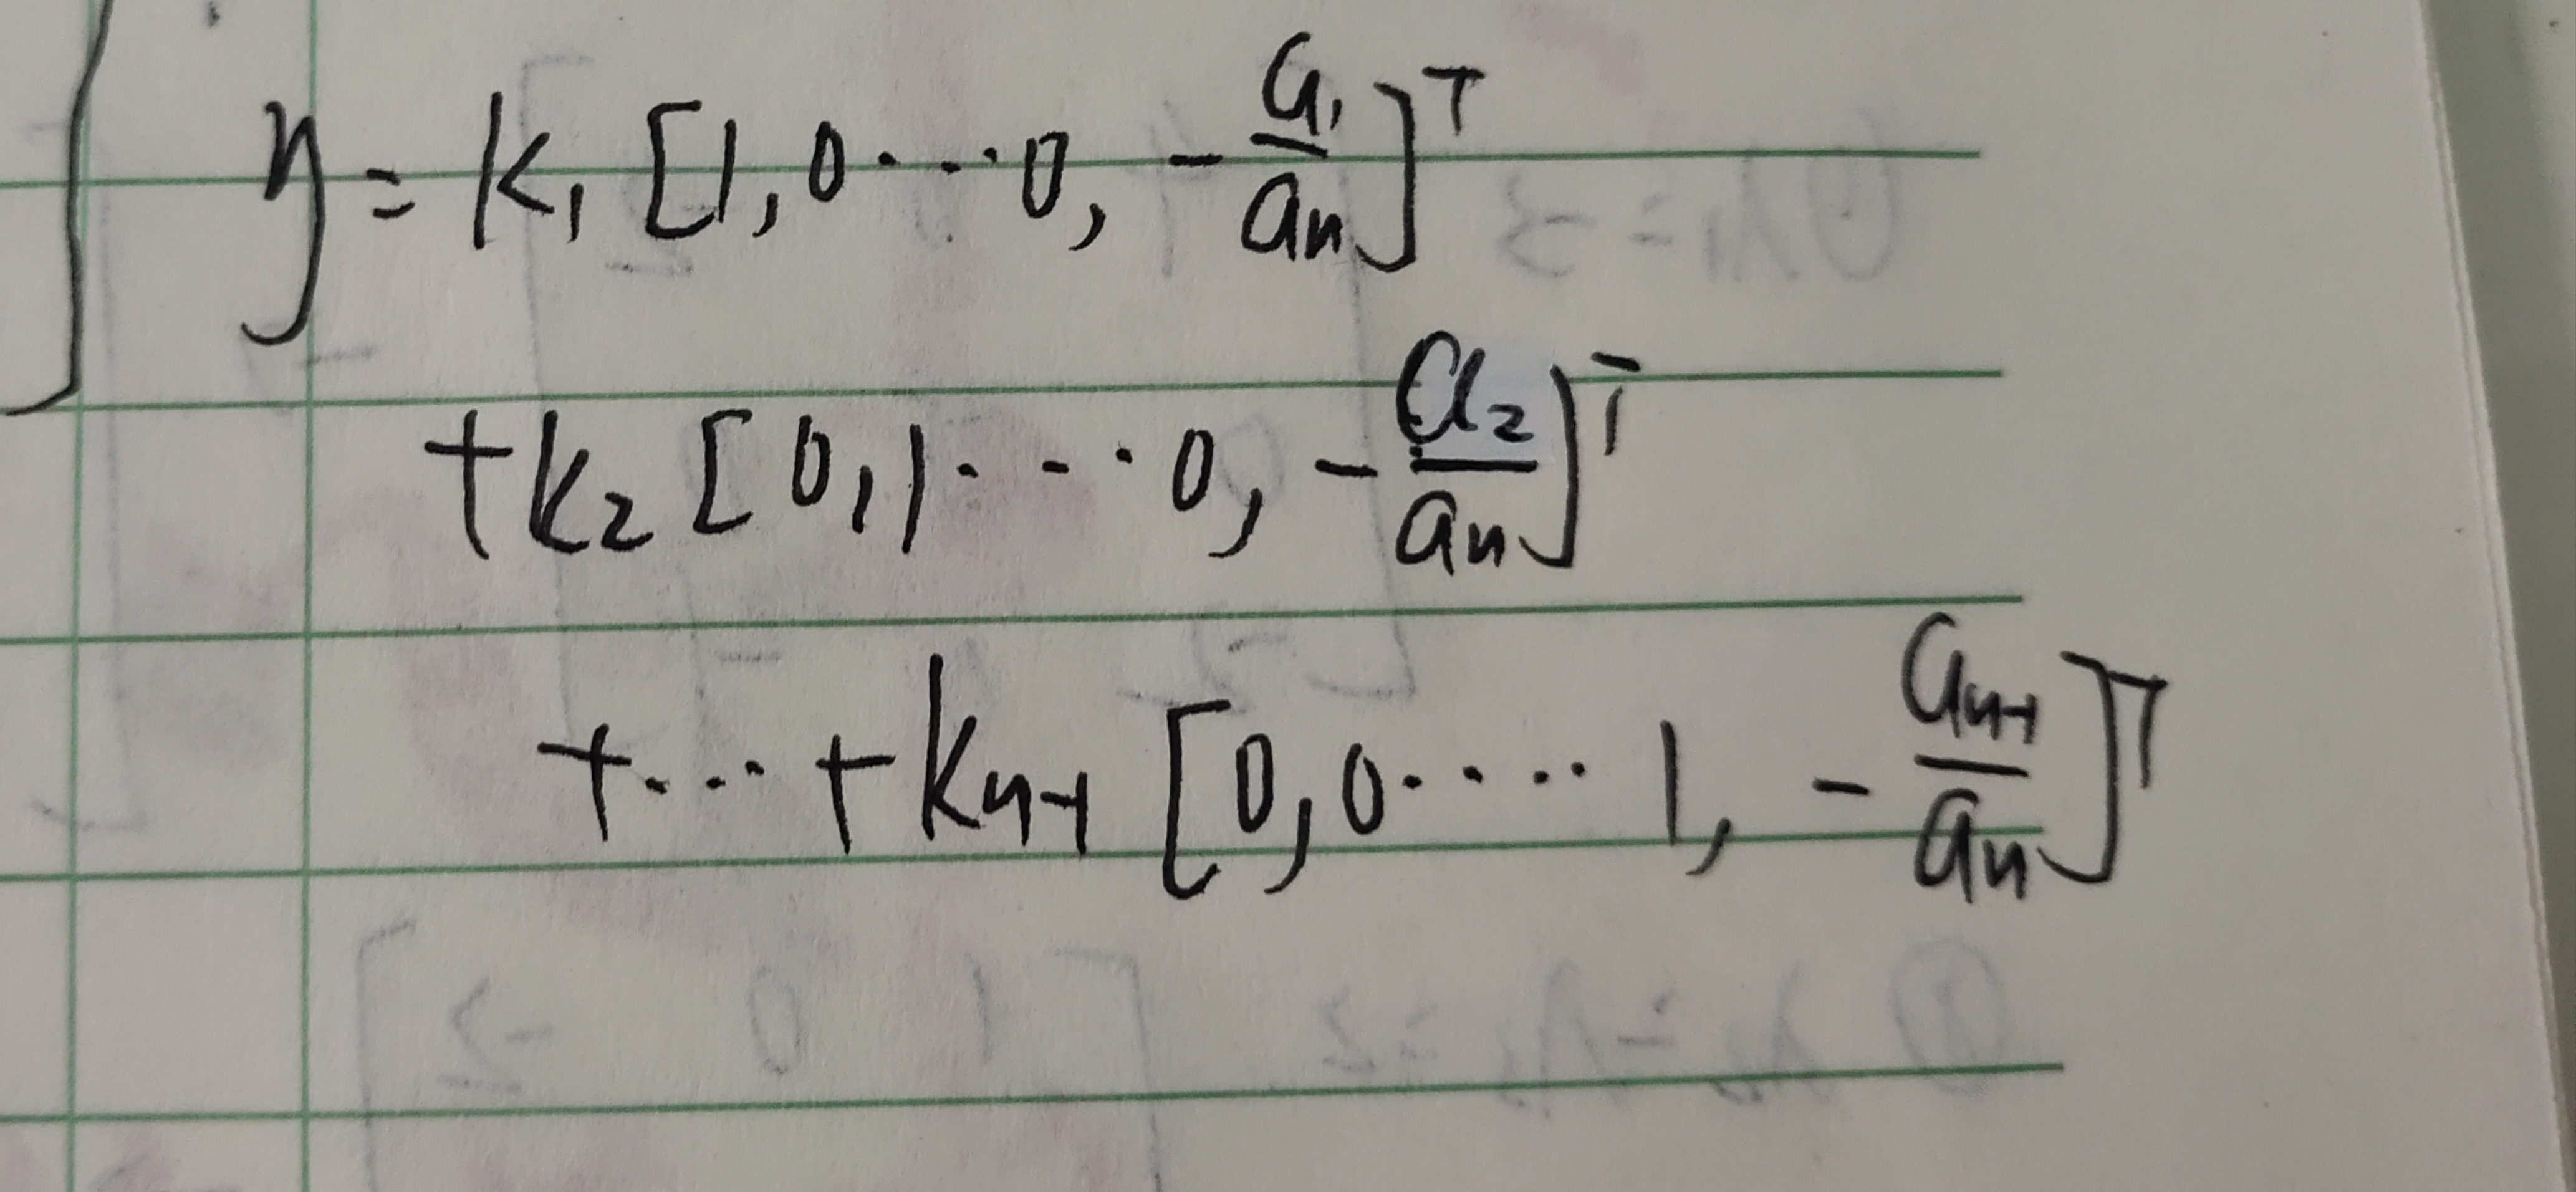 η = k₁ [1, 0 ⋯ 0, -a₁/aₙ]ᵀ
+ k₂ [0, 1 ⋯ 0, -a₂/aₙ]ᵀ
+ ⋯ + kₙ₋₁ [0, 0 ⋯ 1, -aₙ₋₁/aₙ]ᵀ